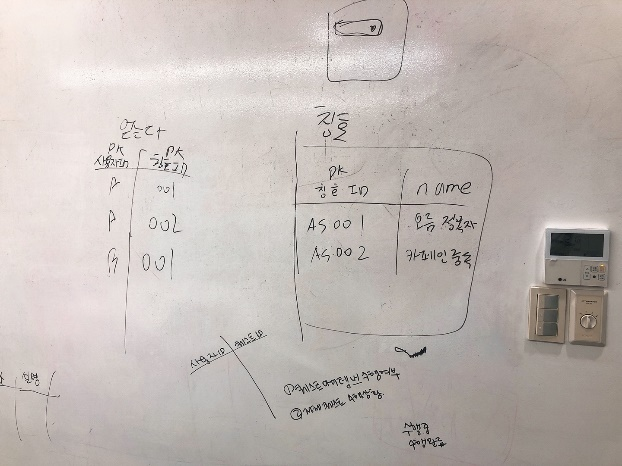 얻는다
PK PK
사용자ID 칭호ID
A 001
A 002
B 001
칭호
PK
칭호 ID name
AS001 오름 정복자
AS002 카페인 중독
사용자ID 퀘스트ID
설명
① 퀘스트 수행여부
② 퀘스트
수행중
수행완료